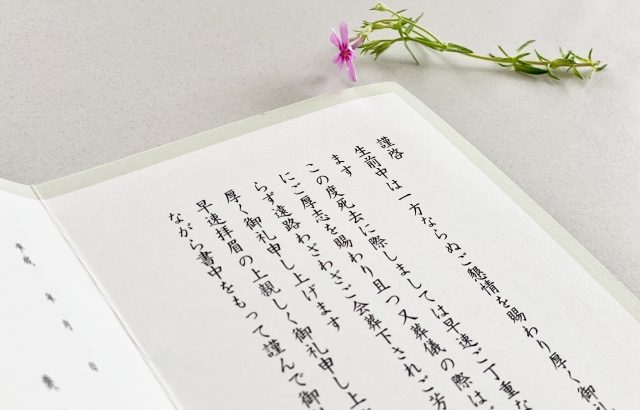 謹啓
生前中は一方ならぬご懇情を賜わり厚く御礼
ます
この度死去に際しましては早速ご丁重な
にご厚志を賜わり且つ又葬儀の際は
らず遠路わざわざご会葬下されご芳
厚く御礼申し上げます
早速拝眉の上親しく御礼申し上
ながら書中をもって謹んで御
年 月 日